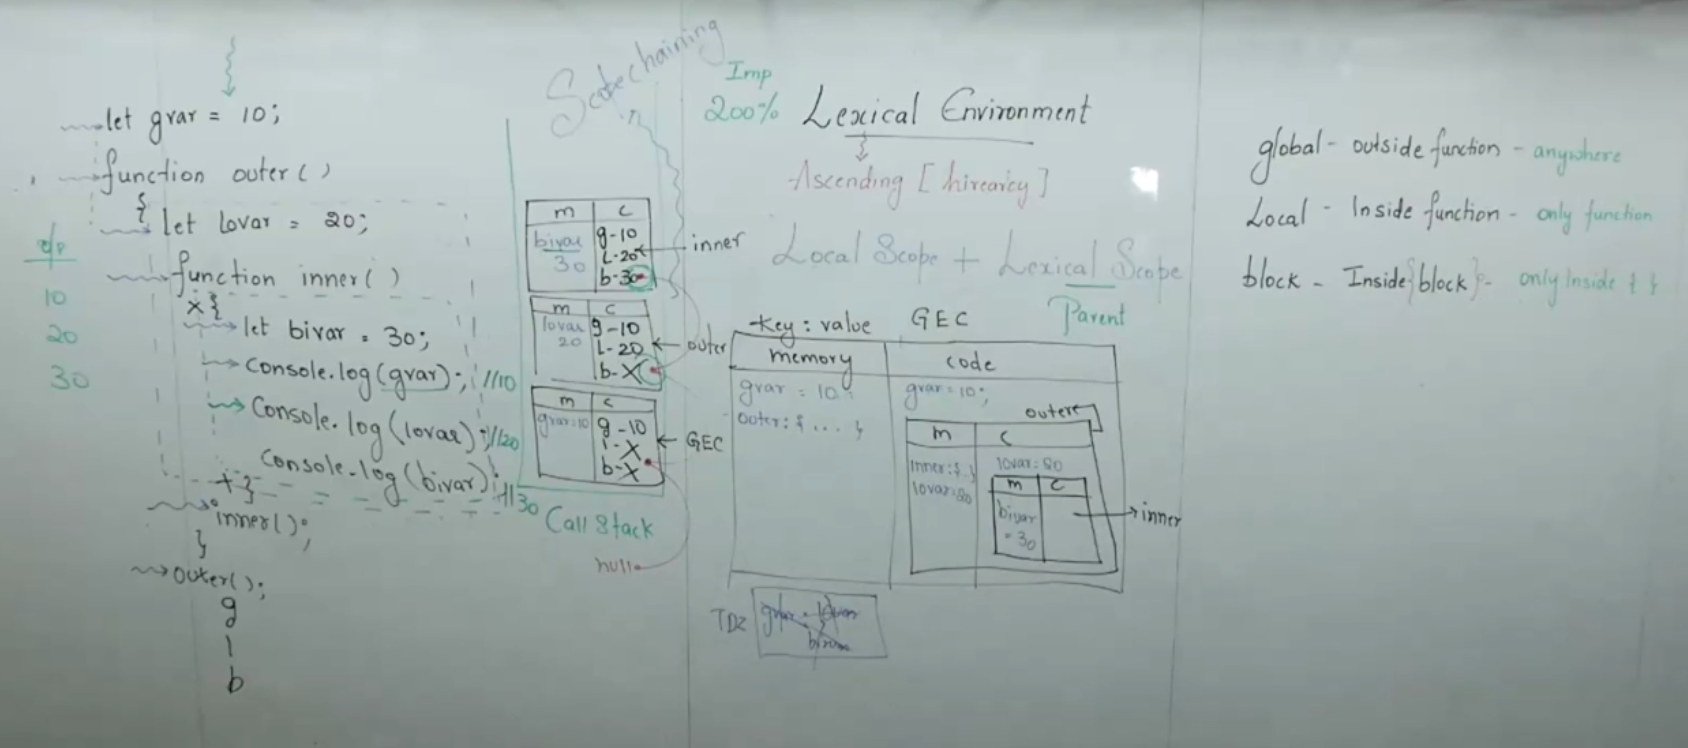 let gvar = 10;
function outer()
{
let lovar = 20;
function inner()
x {
let bivar = 30;
Console.log(gvar); //10
Console.log(lovar); //20
Console.log(bivar); //30
x }
inner();
}
outer();
g
l
b
o/p
10
20
30
Scope chaining
m c
bivar g-10
30 L-20 inner
b-30
m c
lovar g-10
20 L-20 outer
b-X
m c
gvar=10 g-10
l-X GEC
b-X
Call Stack
null
Imp
200% Lexical Environment
Ascending [hirearcy]
Local Scope + Lexical Scope
Parent
key : value GEC
memory code
gvar = 10; gvar=10;
outer: {...} outer
m c
inner:{ } lovar:20
lovar:20
m c
bivar inner
= 30
TDZ
global - outside function - anywhere
Local - Inside function - only function
block - Inside {block} - only Inside { }